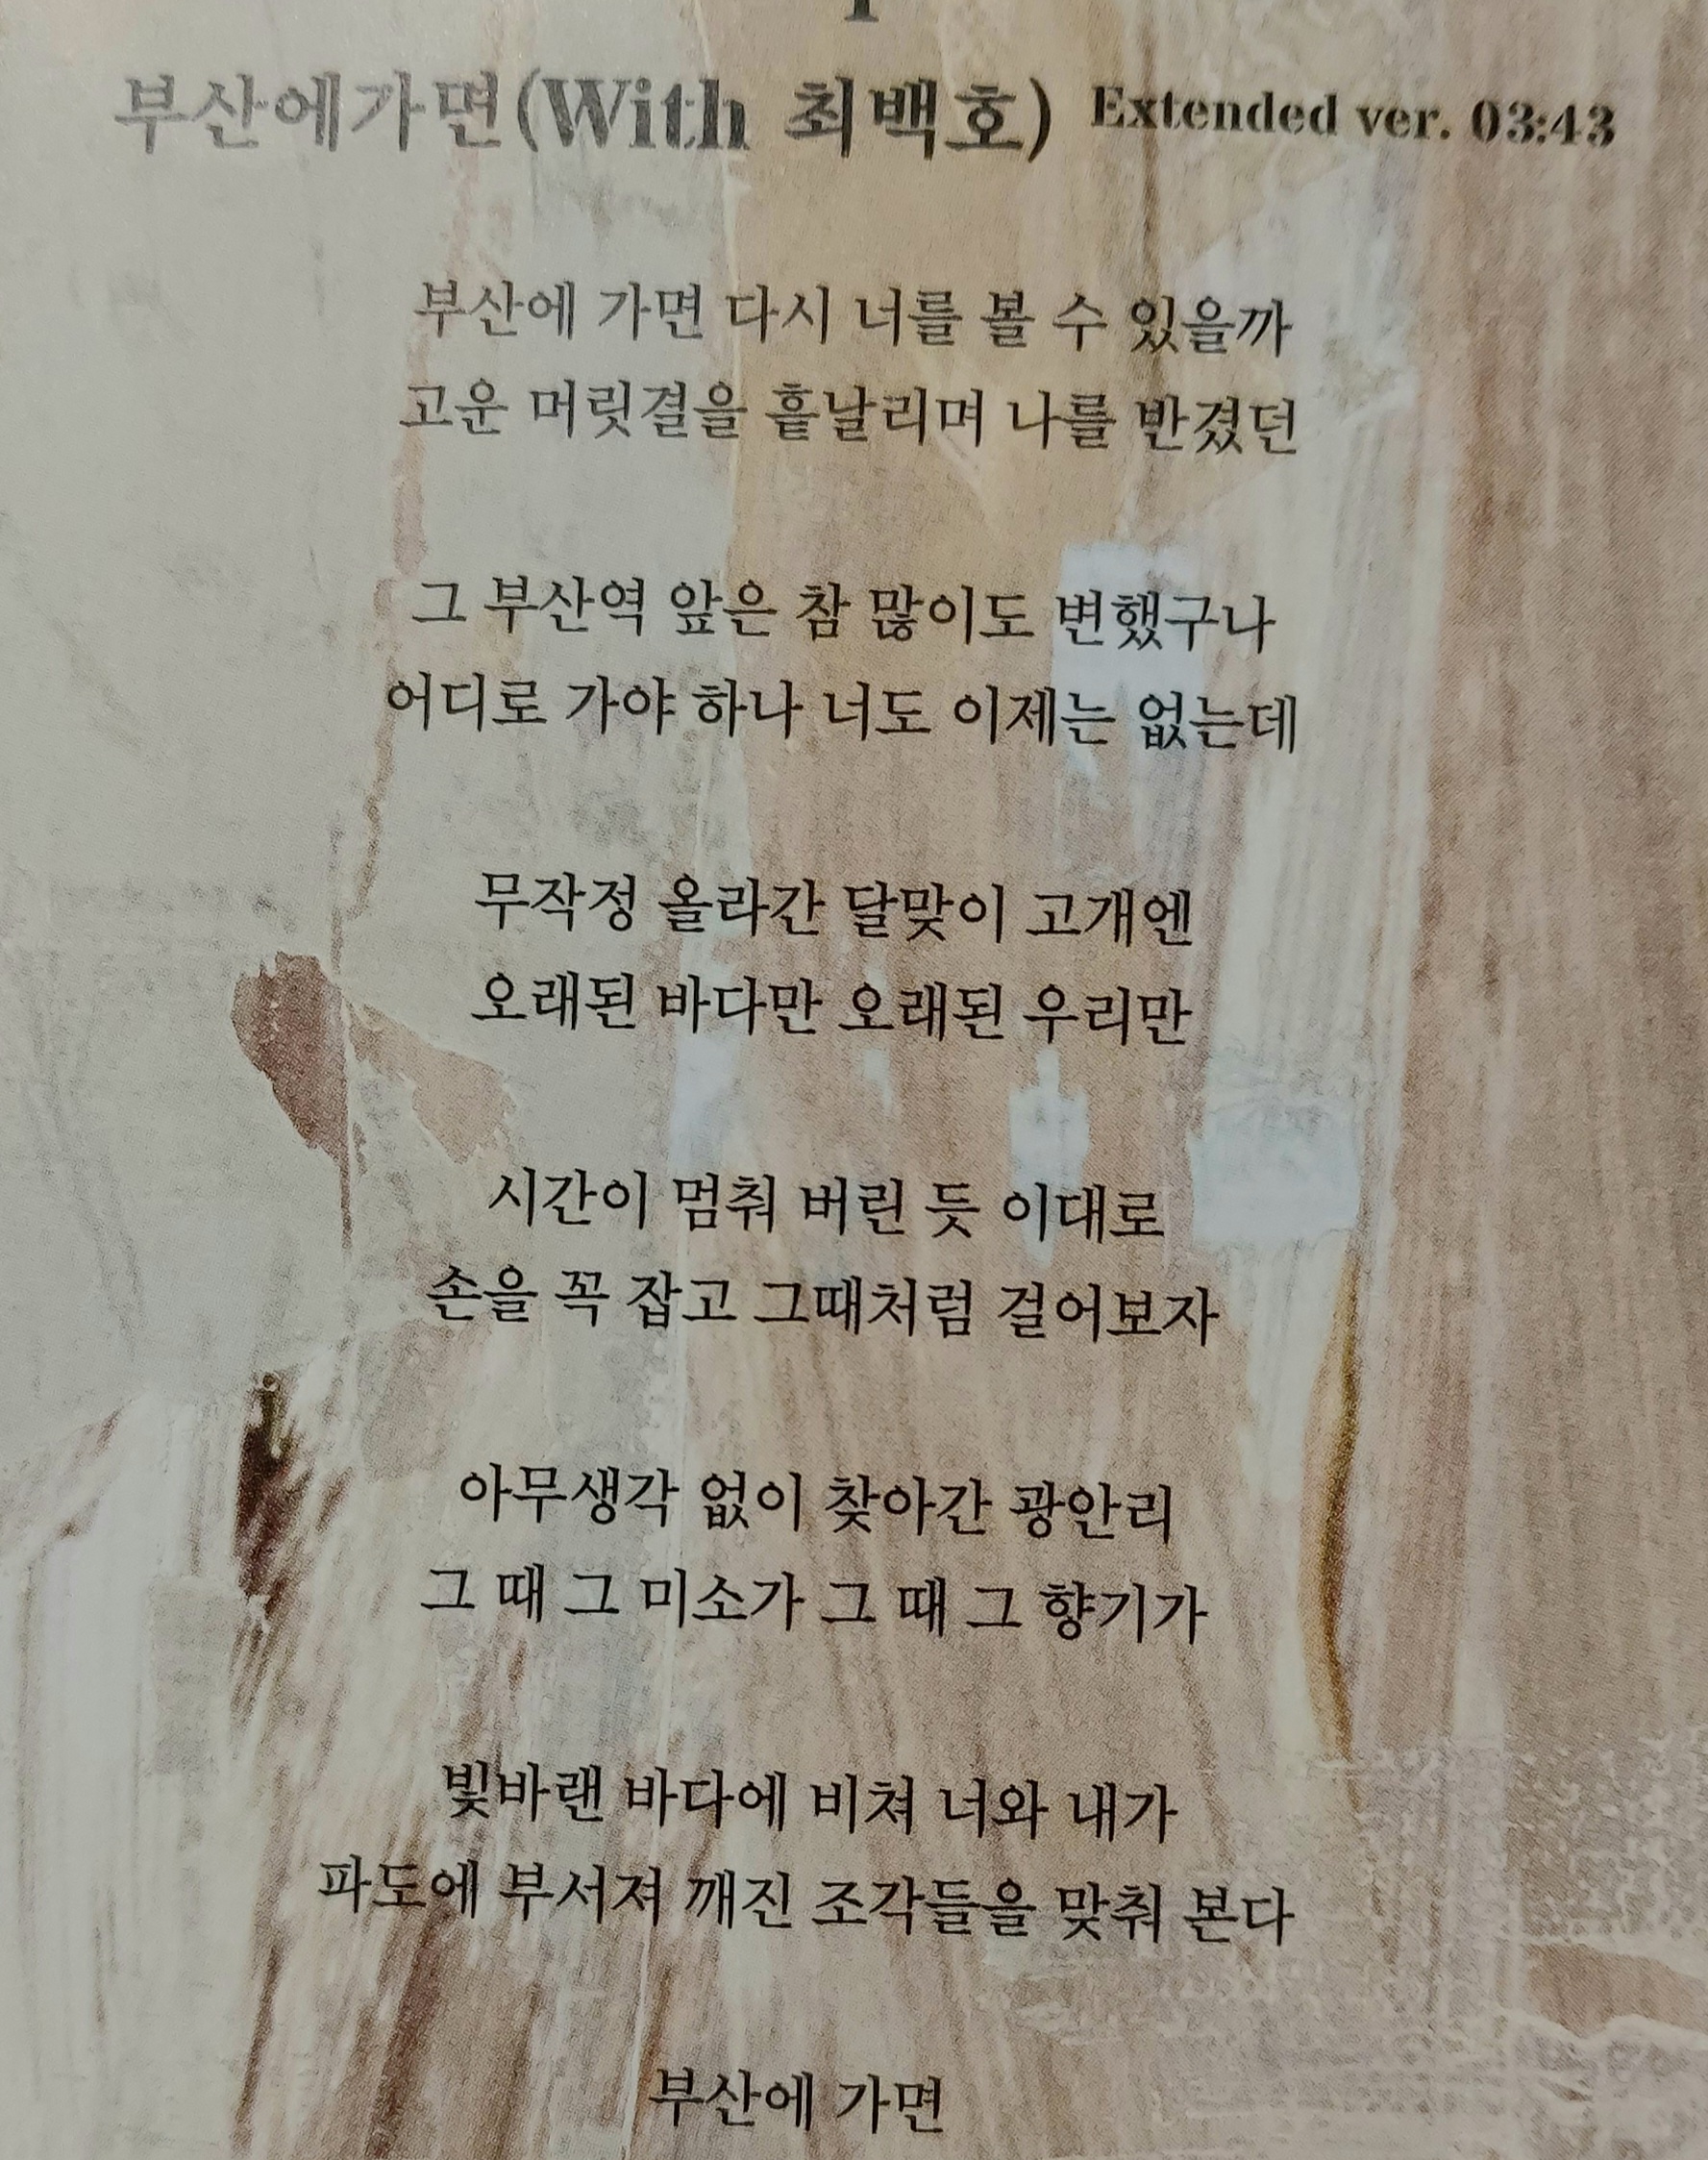 부산에가면(With 최백호) Extended ver. 03:43
부산에 가면 다시 너를 볼 수 있을까
고운 머릿결을 흩날리며 나를 반겼던
그 부산역 앞은 참 많이도 변했구나
어디로 가야 하나 너도 이제는 없는데
무작정 올라간 달맞이 고개엔
오래된 바다만 오래된 우리만
시간이 멈춰 버린 듯 이대로
손을 꼭 잡고 그때처럼 걸어보자
아무생각 없이 찾아간 광안리
그 때 그 미소가 그 때 그 향기가
빛바랜 바다에 비쳐 너와 내가
파도에 부서져 깨진 조각들을 맞춰 본다
부산에 가면